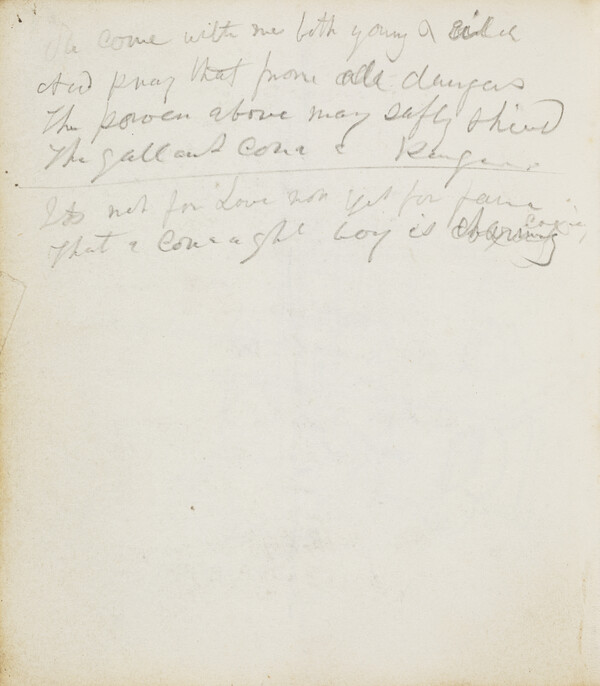 come with me both young &
And pray that from all dangers
The power above may safly shield
The gallant Conna & Rangers
Its not for Love nor yet for fame
That a Connaght boy is